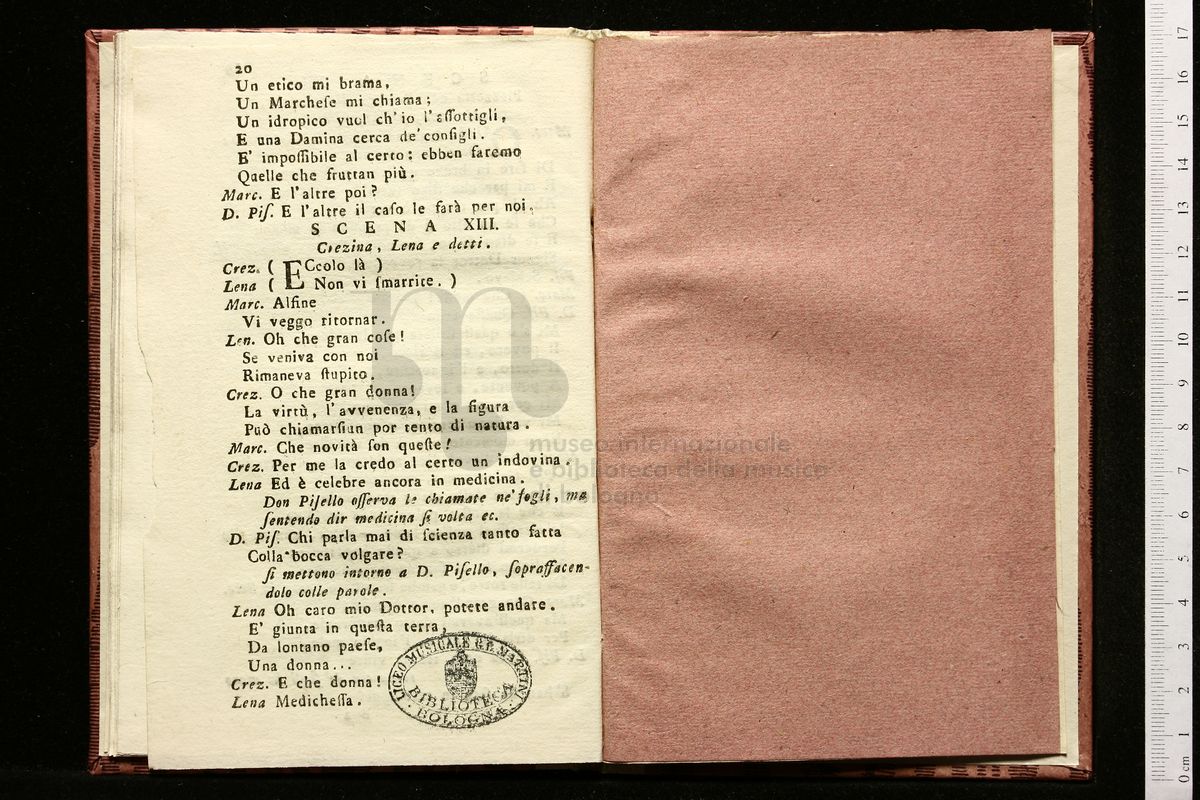 20
Un etico mi brama,
Un Marcheſe mi chiama;
Un idropico vuol ch'io l'aſſottigli,
E una Damina cerca de' conſigli.
E' impoſſibile al certo: ebben faremo
Quelle che fruttan più.
Marc. E l'altre poi?
D. Piſ. E l'altre il caſo le farà per noi.
SCENA XIII.
Crezina, Lena e detti.
Crez. ( ECcolo là )
Lena ( Non vi ſmarrite. )
Marc. Alfine
Vi veggo ritornar.
Len. Oh che gran coſe!
Se veniva con noi
Rimaneva ſtupito.
Crez. O che gran donna!
La virtù, l'avvenenza, e la figura
Può chiamarſi un portento di natura.
Marc. Che novità ſon queſte!
Crez. Per me la credo al certo un indovina.
Lena Ed è celebre ancora in medicina.
Don Piſello oſſerva le chiamate ne' fogli, ma
ſentendo dir medicina ſi volta ec.
D. Piſ. Chi parla mai di ſcienza tanto fatta
Colla bocca volgare?
ſi mettono intorno a D. Piſello, ſopraffacen-
dolo colle parole.
Lena Oh caro mio Dottor, potete andare.
E' giunta in queſta terra,
Da lontano paeſe,
Una donna...
Crez. E che donna!
Lena Medicheſſa.
LICEO MUSICALE G.B. MARTINI
BIBLIOTECA
BOLOGNA
museo internazionale
e biblioteca della musica
di bologna
0 cm 1 2 3 4 5 6 7 8 9 10 11 12 13 14 15 16 17